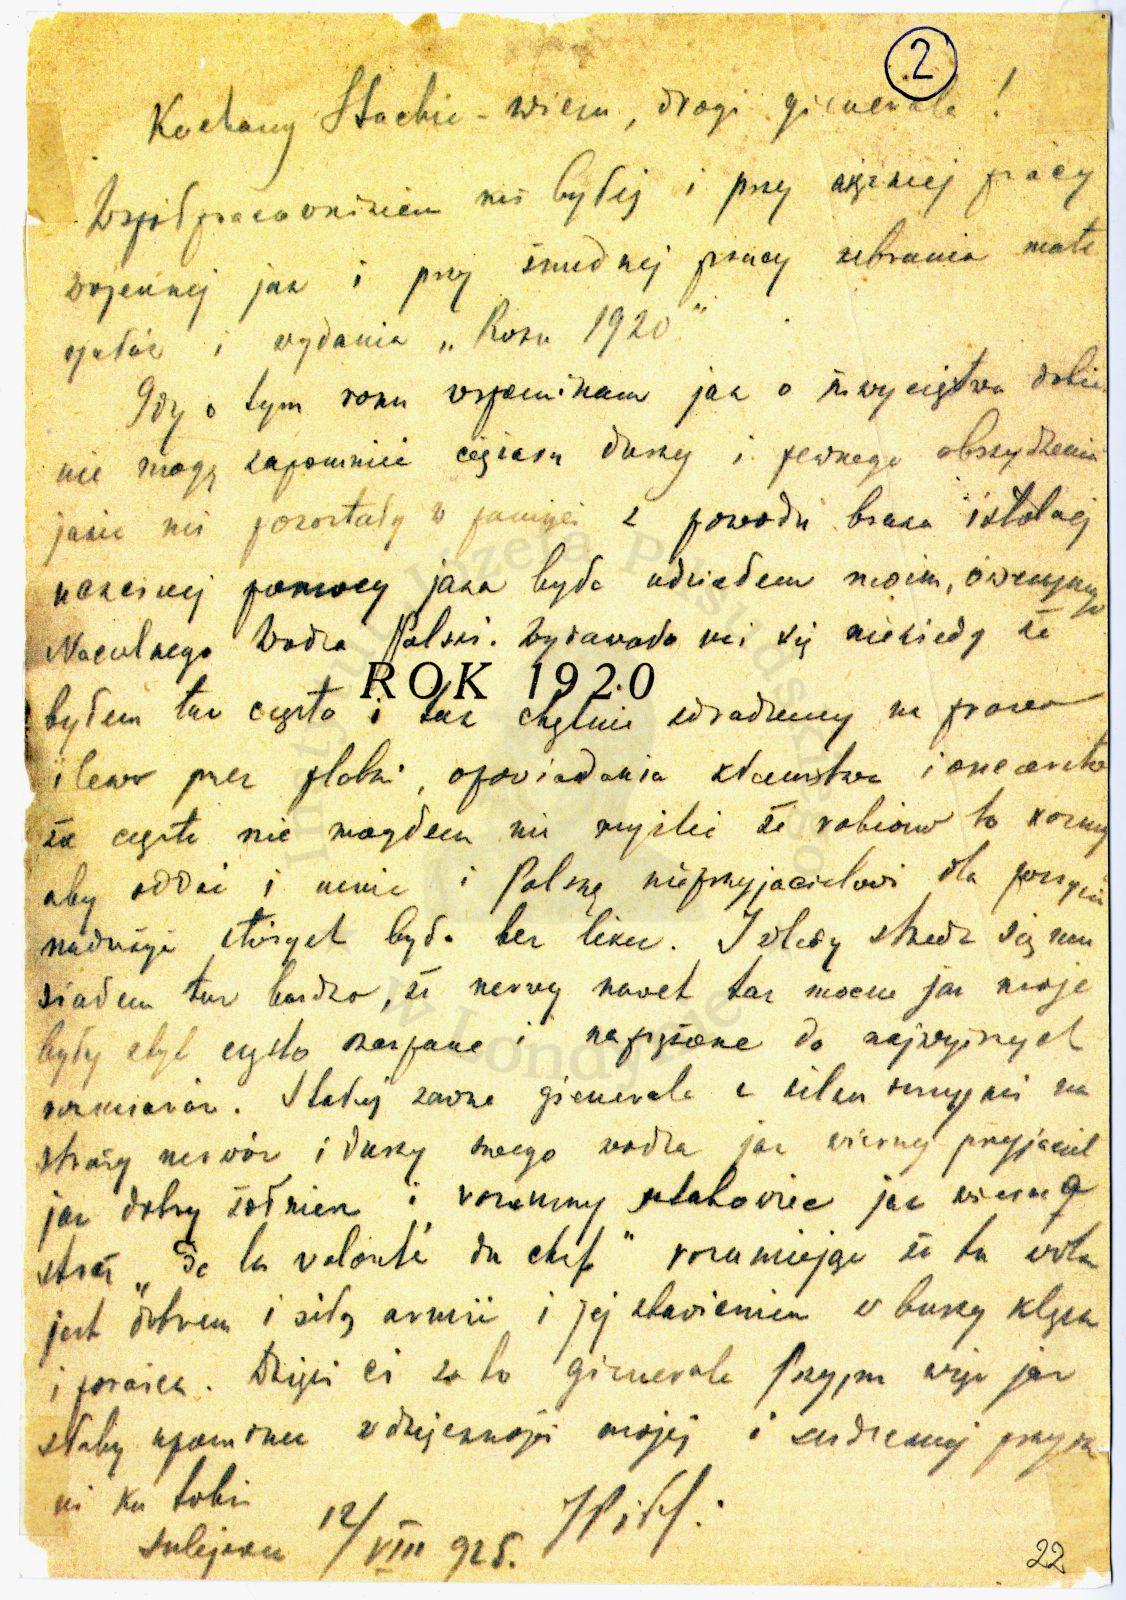 2
Kochany Stachu - wiem, drogi gienerale!
Współpracownikiem mi byłeś i przy ciężkiej pracy
wojennej jak i przy żmudnej pracy zebrania mate
rjałów i wydania „Roku 1920”
Gdy o tym roku wspominam jak o zwycięstwa dobie
nie mogę zapomnieć ciężaru duszy i pewnego obrzydzenia
jakie mi pozostały w pamięci z powodu braku istotnej
pomocy jaka była udziałem moim, ówczesnego
Naczelnego Wodza Polski. Wydawało mi się niekiedy że
ROK 1920
byłem tak często i tak chętnie zdradzany na prawo
i lewo przez plotki, opowiadania kłamstwa i oszczerstwa
że często nie mogłem nie myśleć że robiono to
aby oddać i mnie i Polskę nieprzyjacielowi dla
których była bez liku. I wtedy
tak bardzo, że nerwy nawet tak mocne jak moje
były zbyt często szarpane i naprężone do najwyższych
rozmiarów. Stałeś zawsze gienerale z silną na
straży nerwów i duszy swego wodza jak wierny przyjaciel
jak dobry żołnierz i rozumny sztabowiec jak wierna
straż „de la volonté du chef” rozumiejąc że ta wola
jest dobrem i siłą armii i jej w burzy klęsk
i porażek. Dzięki ci za to gienerale Przyjm więc jak
słaby upominek wdzięczności mojej i serdecznej przyjaź
ni ku tobie
Sulejówek 12/VIII 925. JPiłs.
22
Instytut Józefa Piłsudskiego
w Londynie